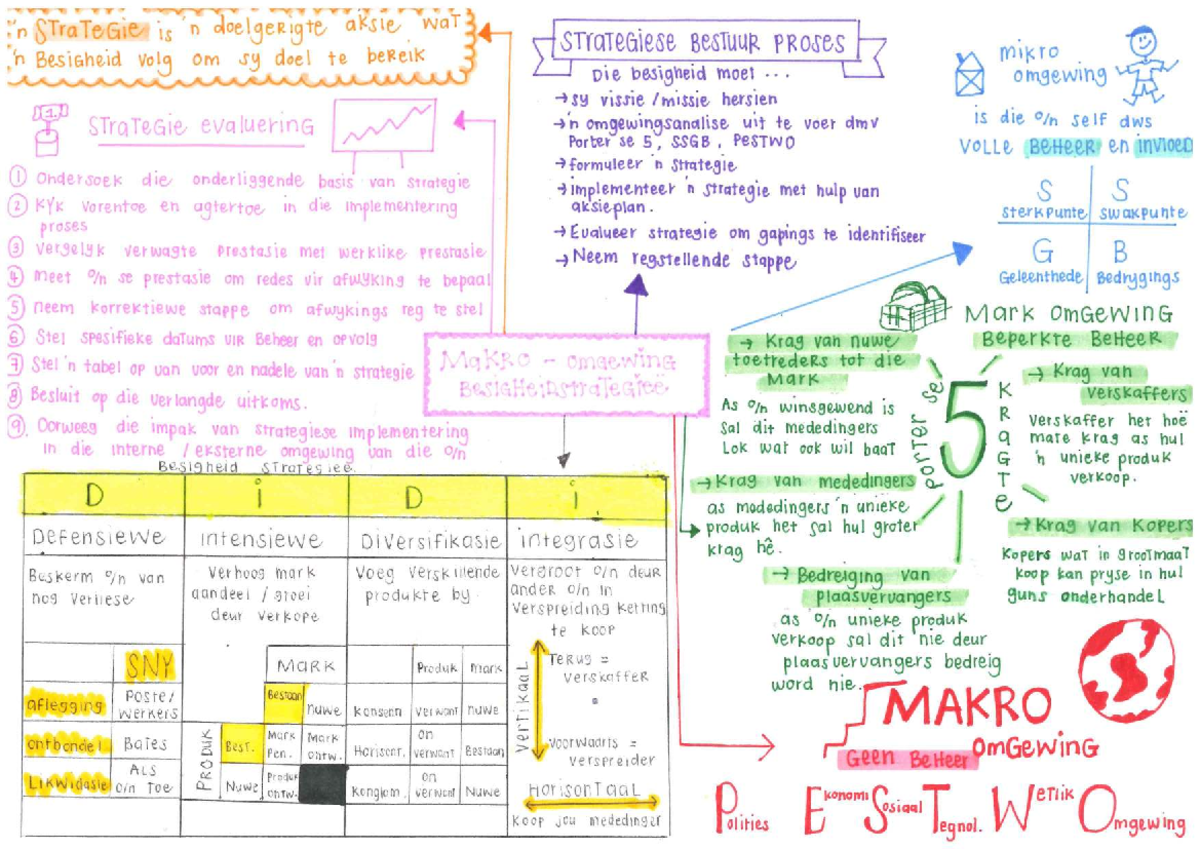 'n STRATEGIE is 'n doelgerigte aksie wat
'n Besigheid volg om sy doel te bereik
STRATEGIE evaluering
① Ondersoek die onderliggende basis van strategie
② Kyk vorentoe en agtertoe in die implementering
proses
③ Vergelyk verwagte prestasie met werklike prestasie
④ meet o/n se prestasie om redes vir afwyking te bepaal
⑤ neem korrektiewe stappe om afwykings reg te stel
⑥ Stel spesifieke datums vir Beheer en opvolg
⑦ Stel 'n tabel op van voor en nadele van 'n strategie
⑧ Besluit op die verlangde uitkoms.
⑨. Oorweeg die impak van strategiese implementering
in die interne / eksterne omgewing van die o/n
STRATEGIESE BESTUUR PROSES
Die besigheid moet ...
→ sy vissie / missie hersien
→ 'n omgewingsanalise uit te voer dmv
Porter se 5, SSGB, PESTWO
→ formuleer 'n strategie
→ implementeer 'n strategie met hulp van
aksieplan.
→ Evalueer strategie om gapings te identifiseer
→ Neem regstellende stappe
mikro
omgewing
is die o/n self dws
VOLLE BEHEER en invloed
S S
sterkpunte swakpunte
G B
Geleenthede Bedrygings
MAKRO - omgewing
BESIGHEIDSTRATEGIEË
Mark omgewing
Beperkte Beheer
Porter se 5 KRAGTE
→ Krag van nuwe
toetreders tot die
Mark
As o/n winsgewend is
sal dit mededingers
Lok wat ook wil baat
→ Krag van verskaffers
verskaffer het hoë
mate krag as hul
'n unieke produk
verkoop.
→ Krag van mededingers
as mededingers 'n unieke
produk het sal hul groter
krag hê.
→ Krag van Kopers
Kopers wat in grootmaat
koop kan pryse in hul
guns onderhandel
→ Bedreiging van
plaasvervangers
as o/n unieke produk
verkoop sal dit nie deur
plaasvervangers bedreig
word nie.
Besigheid strategieë.
D i D i
Defensiewe intensiewe Diversifikasie integrasie
Beskerm o/n van
nog verliese
Verhoog mark
aandeel / groei
deur verkope
Voeg verskillende
produkte by.
Vergroot o/n deur
ander o/n in
verspreiding ketting
te koop
SNY
aflegging Poste/
werkers
ontbondel Bates
Likwidasie ALS
o/n toe
MARK
Bestaan Nuwe
PRODUK
Best. Mark
Pen. Mark
ontw.
Nuwe Produk
ontw.
Produk Mark
Konsent. verwant nuwe
Horisont. on
verwant Bestaan
Konglom. on
verwant Nuwe
Vertikaal
Terug =
verskaffer
voorwaarts =
verspreider
HorisonTaal
Koop jou mededinger
MAKRO
omgewing
Geen Beheer
Polities Ekonomi Sosiaal Tegnol. Wetlik Omgewing